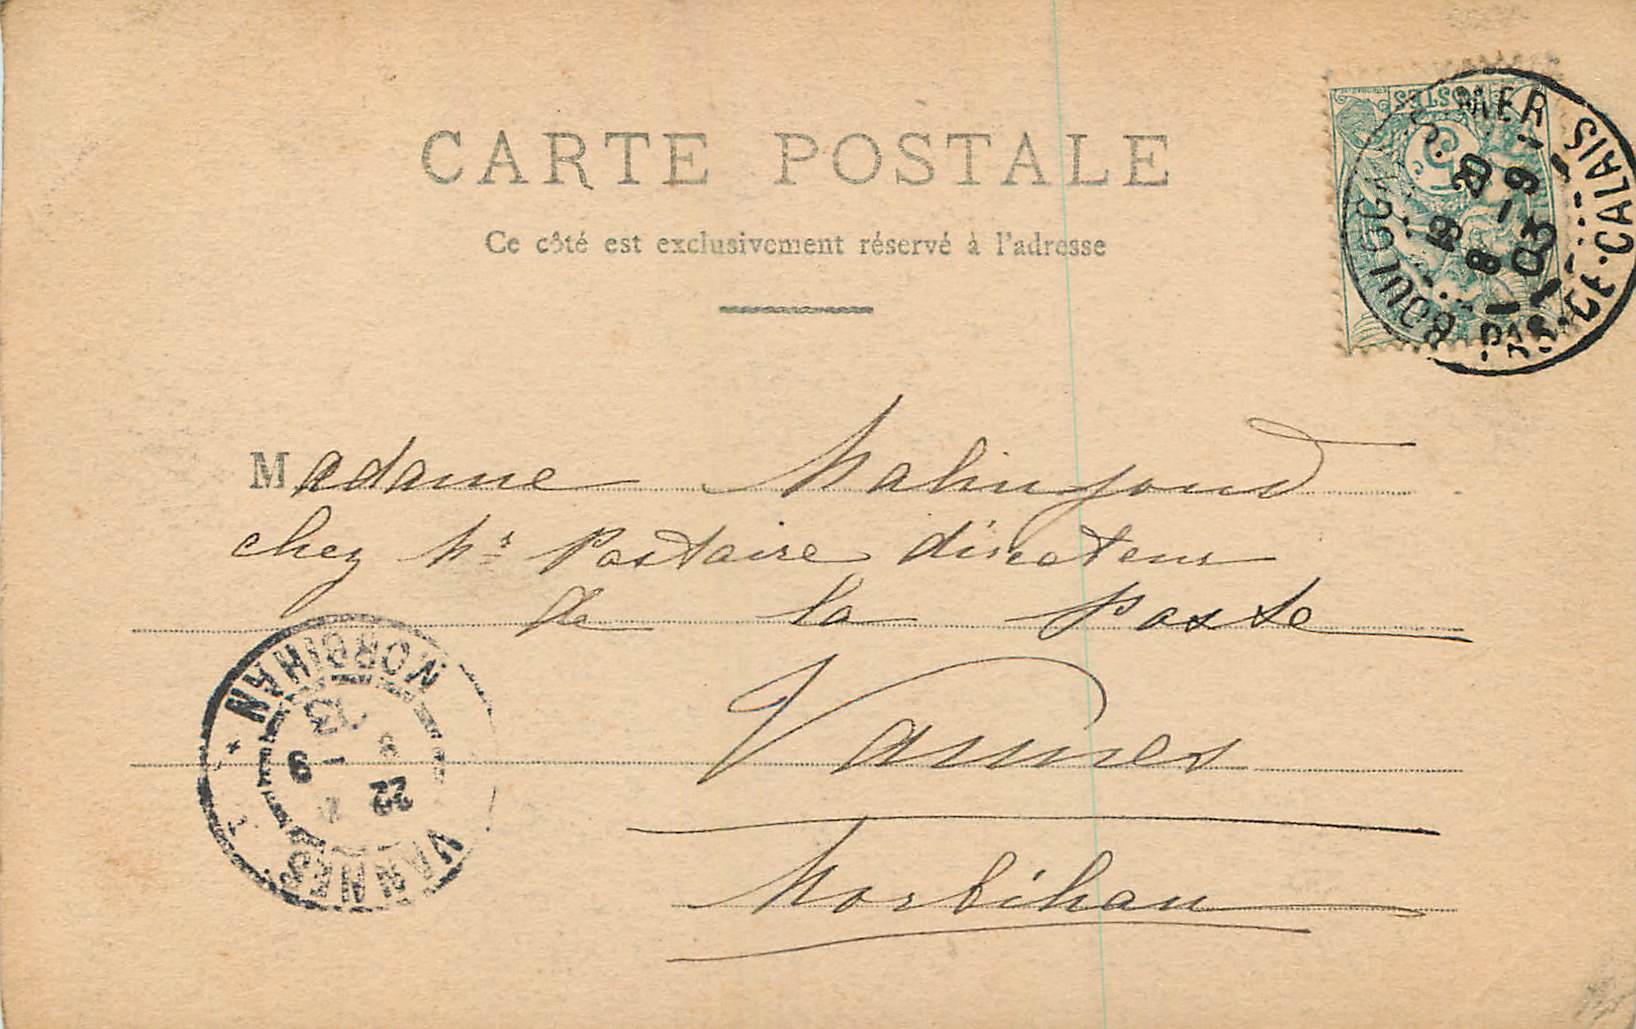 CARTE POSTALE
Ce côté est exclusivement réservé à l'adresse
POSTES
5
BOULOGNE S. MER
PAS-DE-CALAIS
20
8 - 9
03
Madame Malinjoud
chez Mr Postaire directeur
de la Poste
Vannes
Morbihan
VANNES
MORBIHAN
22 - 9